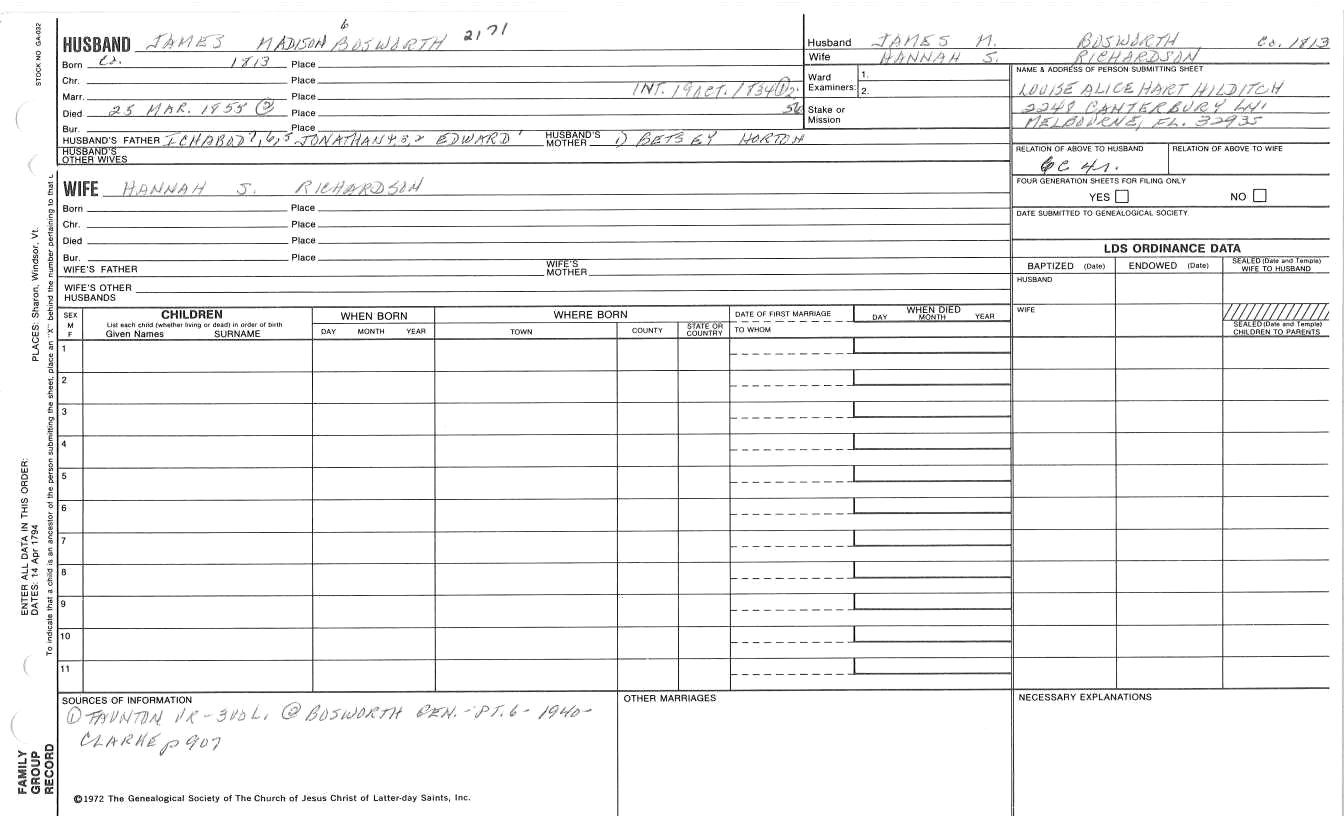 STOCK NO GA-032
HUSBAND JAMES MADISON 6 BOSWORTH 2171
Born Ca. 1813 Place
Chr. Place
Marr. INT. 19 OCT. 1834 ① ②
Died 25 MAR. 1855 ② Place 56
Bur. Place
HUSBAND'S FATHER ICHABOD 7,6,5 JONATHAN 4,3,2 EDWARD 1 HUSBAND'S MOTHER 1) BETSEY HORTON
HUSBAND'S OTHER WIVES
WIFE HANNAH S. RICHARDSON
Born Place
Chr. Place
Died Place
Bur. Place
WIFE'S FATHER WIFE'S MOTHER
WIFE'S OTHER HUSBANDS
Husband JAMES M. BOSWORTH Ca. 1813
Wife HANNAH S. RICHARDSON
Ward Examiners: 1. 2.
Stake or Mission
NAME & ADDRESS OF PERSON SUBMITTING SHEET
LOUISE ALICE HART HILDITCH
2248 CANTERBURY LN.
MELBOURNE, FL. 32935
RELATION OF ABOVE TO HUSBAND RELATION OF ABOVE TO WIFE
6C 4r.
FOUR GENERATION SHEETS FOR FILING ONLY
YES NO
DATE SUBMITTED TO GENEALOGICAL SOCIETY
LDS ORDINANCE DATA
BAPTIZED (Date) ENDOWED (Date) SEALED (Date and Temple) WIFE TO HUSBAND
HUSBAND
WIFE
SEALED (Date and Temple) CHILDREN TO PARENTS
SEX M F
CHILDREN
List each child (whether living or dead) in order of birth
Given Names SURNAME
WHEN BORN
DAY MONTH YEAR
WHERE BORN
TOWN COUNTY STATE OR COUNTRY
DATE OF FIRST MARRIAGE
TO WHOM
WHEN DIED
DAY MONTH YEAR
1
2
3
4
5
6
7
8
9
10
11
SOURCES OF INFORMATION
① TAUNTON VR - 3 VOL. ② BOSWORTH GEN. - PT. 6 - 1940 -
CLARKE p 907
OTHER MARRIAGES
NECESSARY EXPLANATIONS
©1972 The Genealogical Society of The Church of Jesus Christ of Latter-day Saints, Inc.
FAMILY GROUP RECORD
ENTER ALL DATA IN THIS ORDER:
DATES: 14 Apr 1794
PLACES: Sharon, Windsor, Vt.
To indicate that a child is an ancestor of the person submitting the sheet, place an "X" behind the number pertaining to that